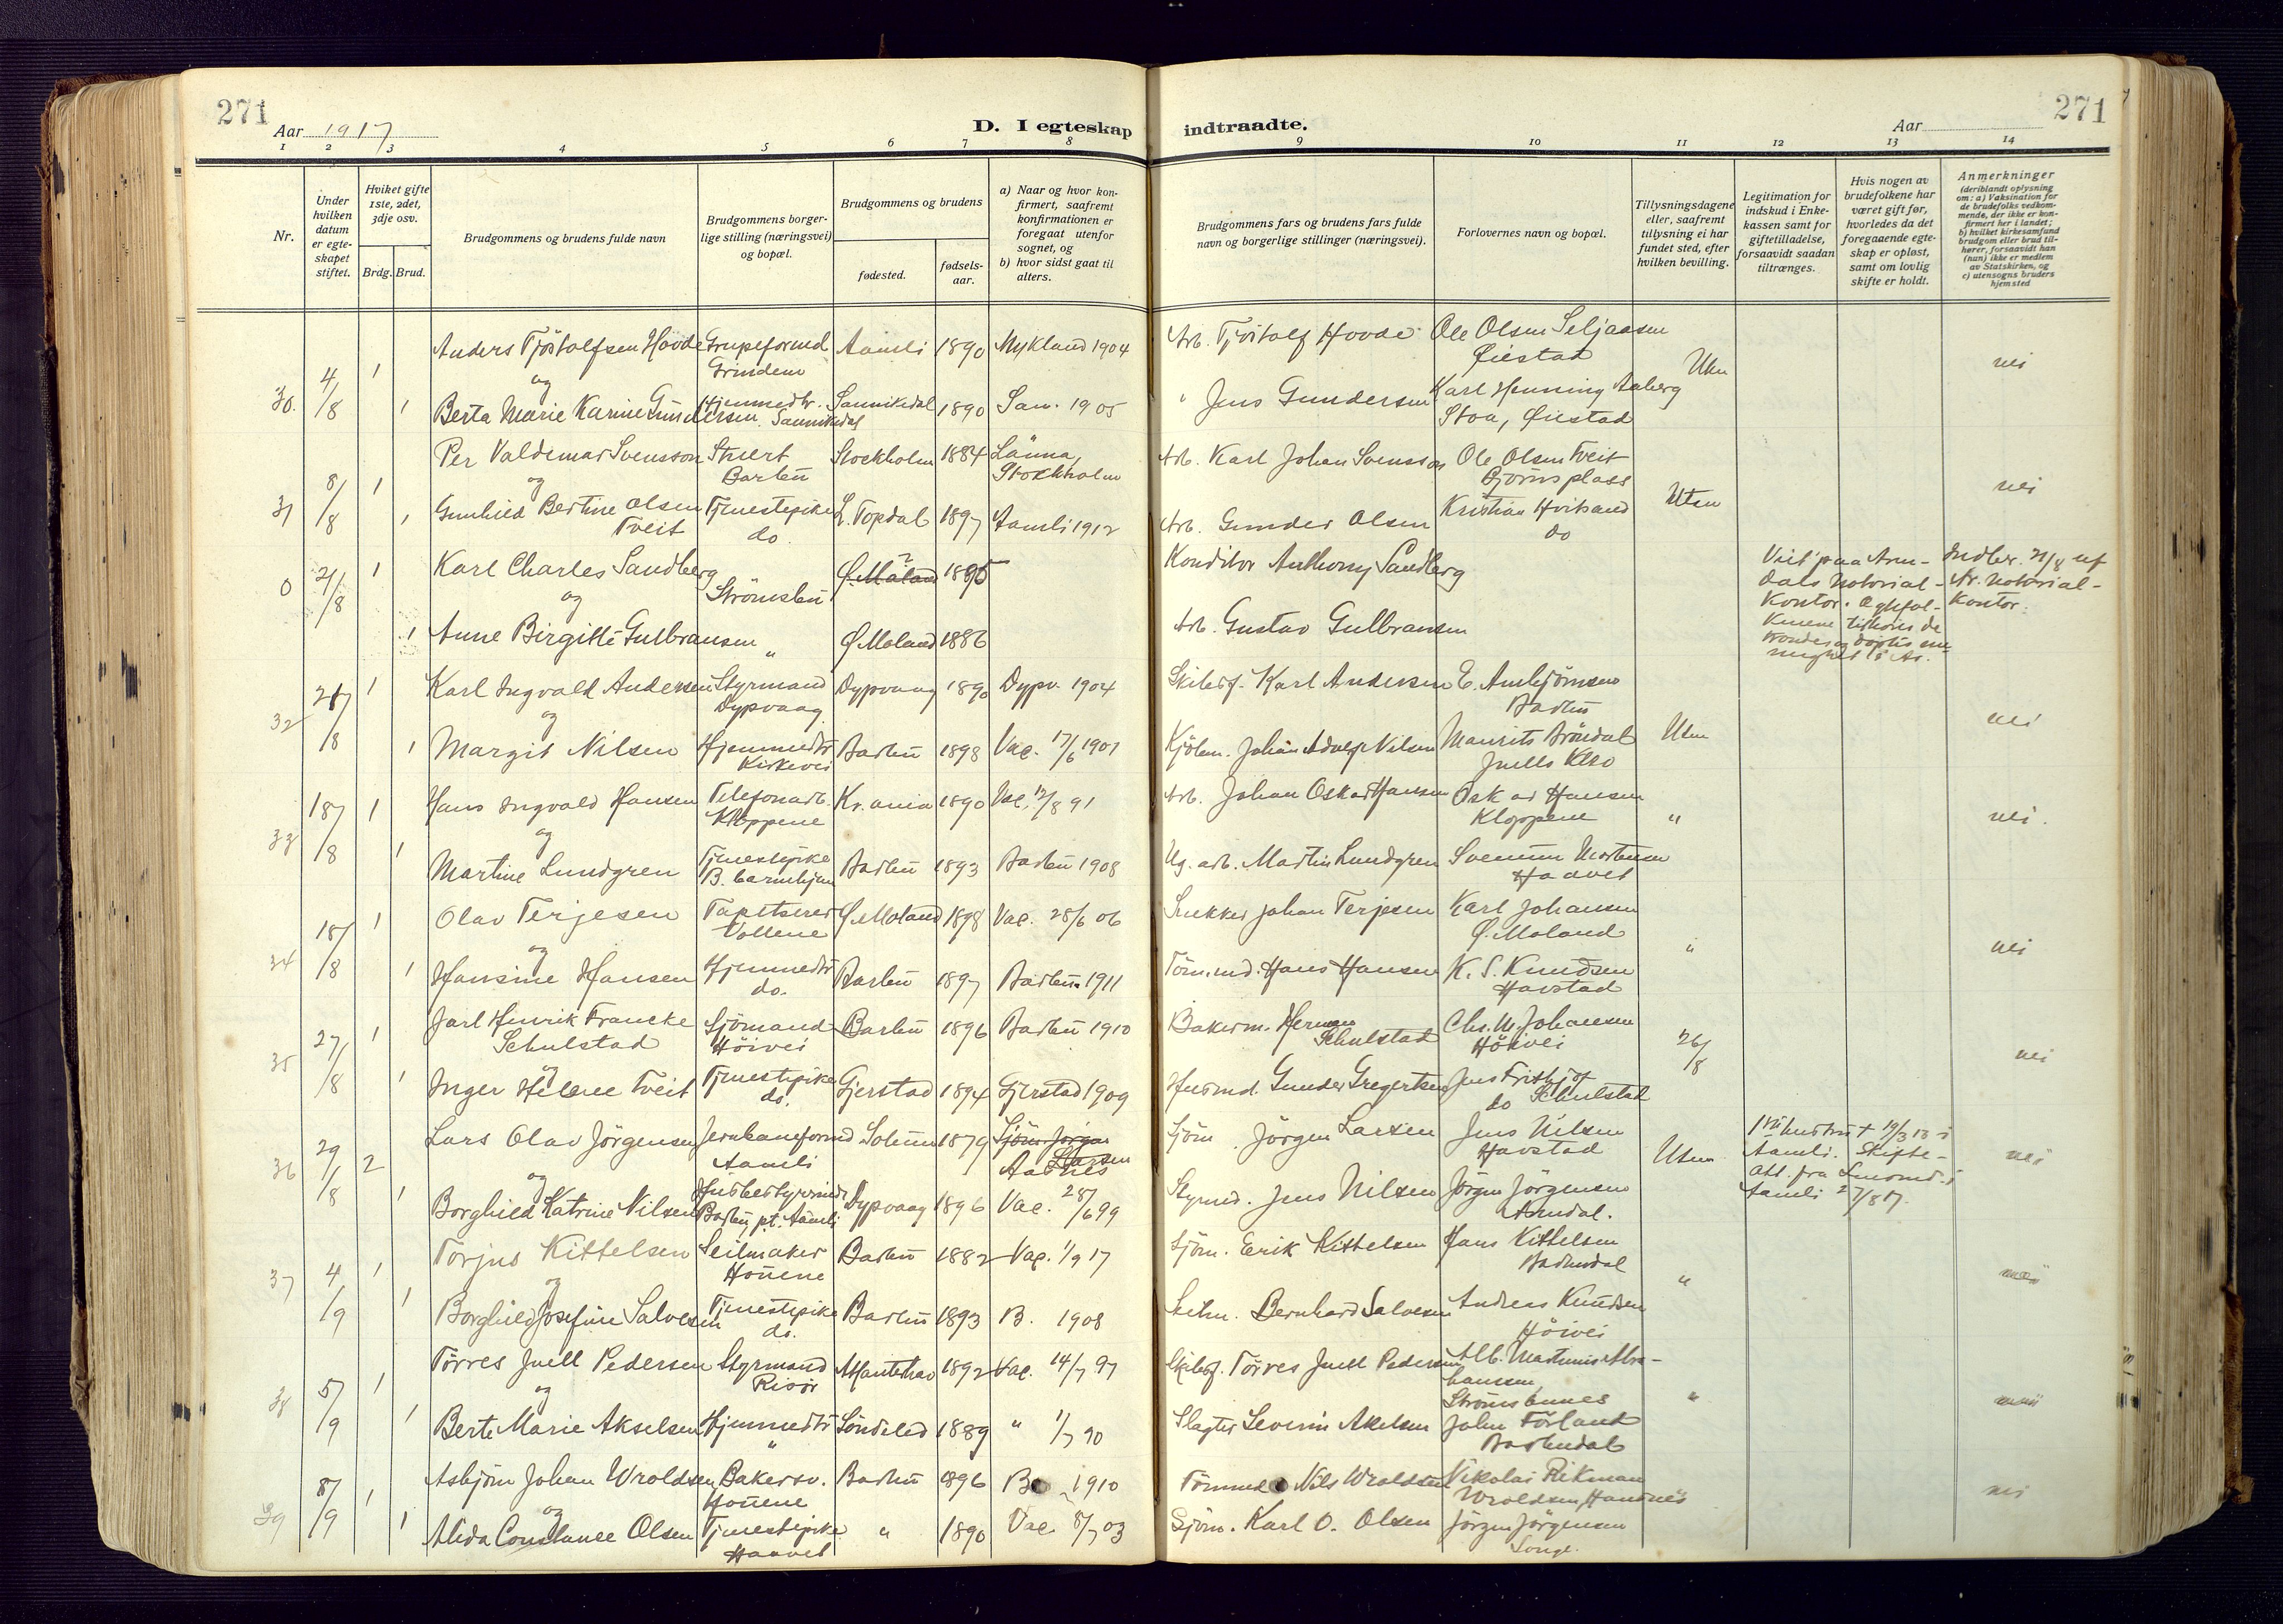 271
Aar 1917
D. I egteskap
1 2 3 4 5 6 7 8
Nr.
Under hvilken datum er egteskapet stiftet.
Hviket gifte 1ste, 2det, 3dje osv.
Brdg. Brud.
Brudgommens og brudens fulde navn
Brudgommens borgerlige stilling (næringsvei) og bopæl.
Brudgommens og brudens
fødested.
fødselsaar.
a) Naar og hvor konfirmert, saafremt konfirmationen er foregaat utenfor sognet, og
b) hvor sidst gaat til alters.
indtraadte.
Aar
271
9 10 11 12 13 14
Brudgommens fars og brudens fars fulde navn og borgerlige stillinger (næringsvei).
Forlovernes navn og bopæl.
Tillysningsdagene eller, saafremt tillysning ei har fundet sted, efter hvilken bevilling.
Legitimation for indskud i Enkekassen samt for giftetilladelse, forsaavidt saadan tiltrænges.
Hvis nogen av brudefolkene har været gift før, hvorledes da det foregaaende egteskap er opløst, samt om lovlig skifte er holdt.
Anmerkninger
(deriblandt oplysning om: a) Vaksination for de brudefolks vedkommende, der ikke er konfirmert her i landet; b) hvilket kirkesamfund brudgom eller brud tilhører, forsaavidt han (hun) ikke er medlem av Statskirken, og c) utensogns bruders hjemsted
30. 4/8 1 Anders Tjöstolfsen Hovde Grupeformd. Aamli 1890 Mykland 1904 Arb. Tjöstolf Hovde Ole Olsen Seljaasen
og Grindem Öiestad Uten nei
1 Berta Marie Karine Gundersen Hjemmedtr. Sannikedal Sannikedal 1890 San. 1905 " Jens Gundersen Karl Henning Aaberg
Stoa, Öiestad
31 8/8 1 Per Valdemar Svensson Stuert Stockholm 1884 Länna, Arb. Karl Johan Svensson Ole Olsen Tveit
og Barbu Stockholm Björnsplass nei
1 Gunhild Bertine Olsen Tjenestepike L. Topdal 1897 Aamli 1912 Arb. Gunder Olsen Kristian Hvitsand Uten
Tveit do. do
0 21/8 1 Karl Charles Sandberg Ö. Moland 1885 Konditor Anthony Sandberg
og Strömsbu
1 Anne Birgitte Gulbransen " Ö. Moland 1886 Arb. Gustav Gulbransen
Viet paa Arendals Notorial-Kontor.
Indber. 21/8 Ar. Notorial-Kontor.
32 21/8 1 Karl Ingvald Andersen Styrmand Dypvaag 1890 Dypv. 1904 Skibsf. Karl Andersen E. Ambjörnsen
og Dypvaag Barbu nei
1 Margit Nilsen Hjemmedtr Barbu 1898 Vac. 17/6 1901 Johan Adolf Nilsen Maurits Bröndal Uten
Kirkevei Juells Klev
33 18/8 1 Hans Ingvald Hansen Telefonarb. Kr.ania 1890 Vac. 12/8 91 Arb. Johan Oskar Hansen Oskar Hansen
og Kloppene Kloppene " nei.
1 Martine Lundgren Tjenestepike Barbu 1893 Barbu 1908 Ug. arb. Martin Lundgren Svenum Mortensen
B. barnehjem Haavet
34 18/8 1 Olav Terjesen Tapetserer Ö. Moland 1898 Vac. 28/6 06 Snekker Johan Terjesen Karl Johansen
og Vollene Ö. Moland " nei
1 Hansine Hansen Hjemmedtr Barbu 1897 Barbu 1911 Töm.md. Hans Hansen K. S. Knudsen
do. Havstad
35 27/8 1 Jarl Henrik Francke Sjömand Barbu 1896 Barbu 1910 Bakerm. Herman Chr. M. Johansen
Schulstad Höivei Schulstad Höivei 26/8 nei
og
1 Inger Helene Tveit Tjenestepike Gjerstad 1894 Gjerstad 1909 Husmd. Gunder Gregertsen Jens Frithjof
do. do Schulstad
36 29/8 2 Lars Olav Jörgensen Jernbaneformd Solum 1879 Sjöm. Jörgen Larsen Sjöm. Jörgen Larsen Jens Nilsen
og Aamli Aasnes Havstad Uten nei
1 Borghild Katrine Nilsen Husbestyrerinde Dypvaag 1896 Vac. 28/6 99 Styrmd. Jens Nilsen Jörgen Jörgensen
Barbu, pt. Aamli Arendal.
1ste hustru † 19/3 13 i
Aamli. Skifte-
att. fra Lensmd. i
Aamli 27/8 17.
37 4/9 1 Torjus Kittelsen Seilmaker Barbu 1882 Vac. 1/9 17 Sjöm. Eerik Kittelsen Hans Kittelsen
og Houene Barbudal " nei
1 Borghild Josefine Salvesen Tjenestepike Barbu 1893 B. 1908 Bernhard Salvesen Andreas Knudsen
do. Höivei
38 5/9 1 Törres Juell Pedersen Styrmand Atlanterhav 1892 Vac. 14/7 97 Skibsf. Törres Juell Pedersen Alb. Martinius Abra-
og Risör hansen,
Strömsbunes " nei
1 Berte Marie Akselsen Hjemmedtr Söndeled 1889 " 1/7 90 Slagter Severin Akselsen John Förland
" Barbudal
39 8/9 1 Asbjörn Johan Wroldsen Bakersv. Barbu 1896 B 1910 Tömmmd Nils Wroldsen Nikolai Rikman
og Houene Wroldsen, Handnes nei
1 Alida Constance Olsen Tjenestepike " 1890 Vac. 8/7 03 Sjöm. Karl O. Olsen Jörgen Jörgensen
Haavet Songe.